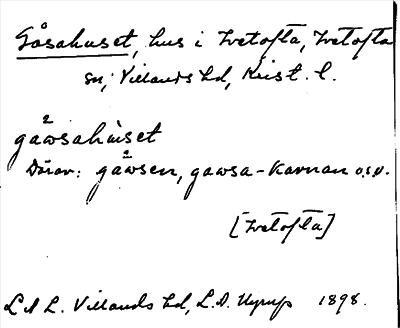 Gåsahuset, hus i Ivetofta, Ivetofta
sn, Villands hd, Krist. l.
gawsahùset
Därav: gawsen, gawsa-karnan o.s.v.
[Ivetofta]
LAL. Villands hd, L.P. Nyrup 1898.